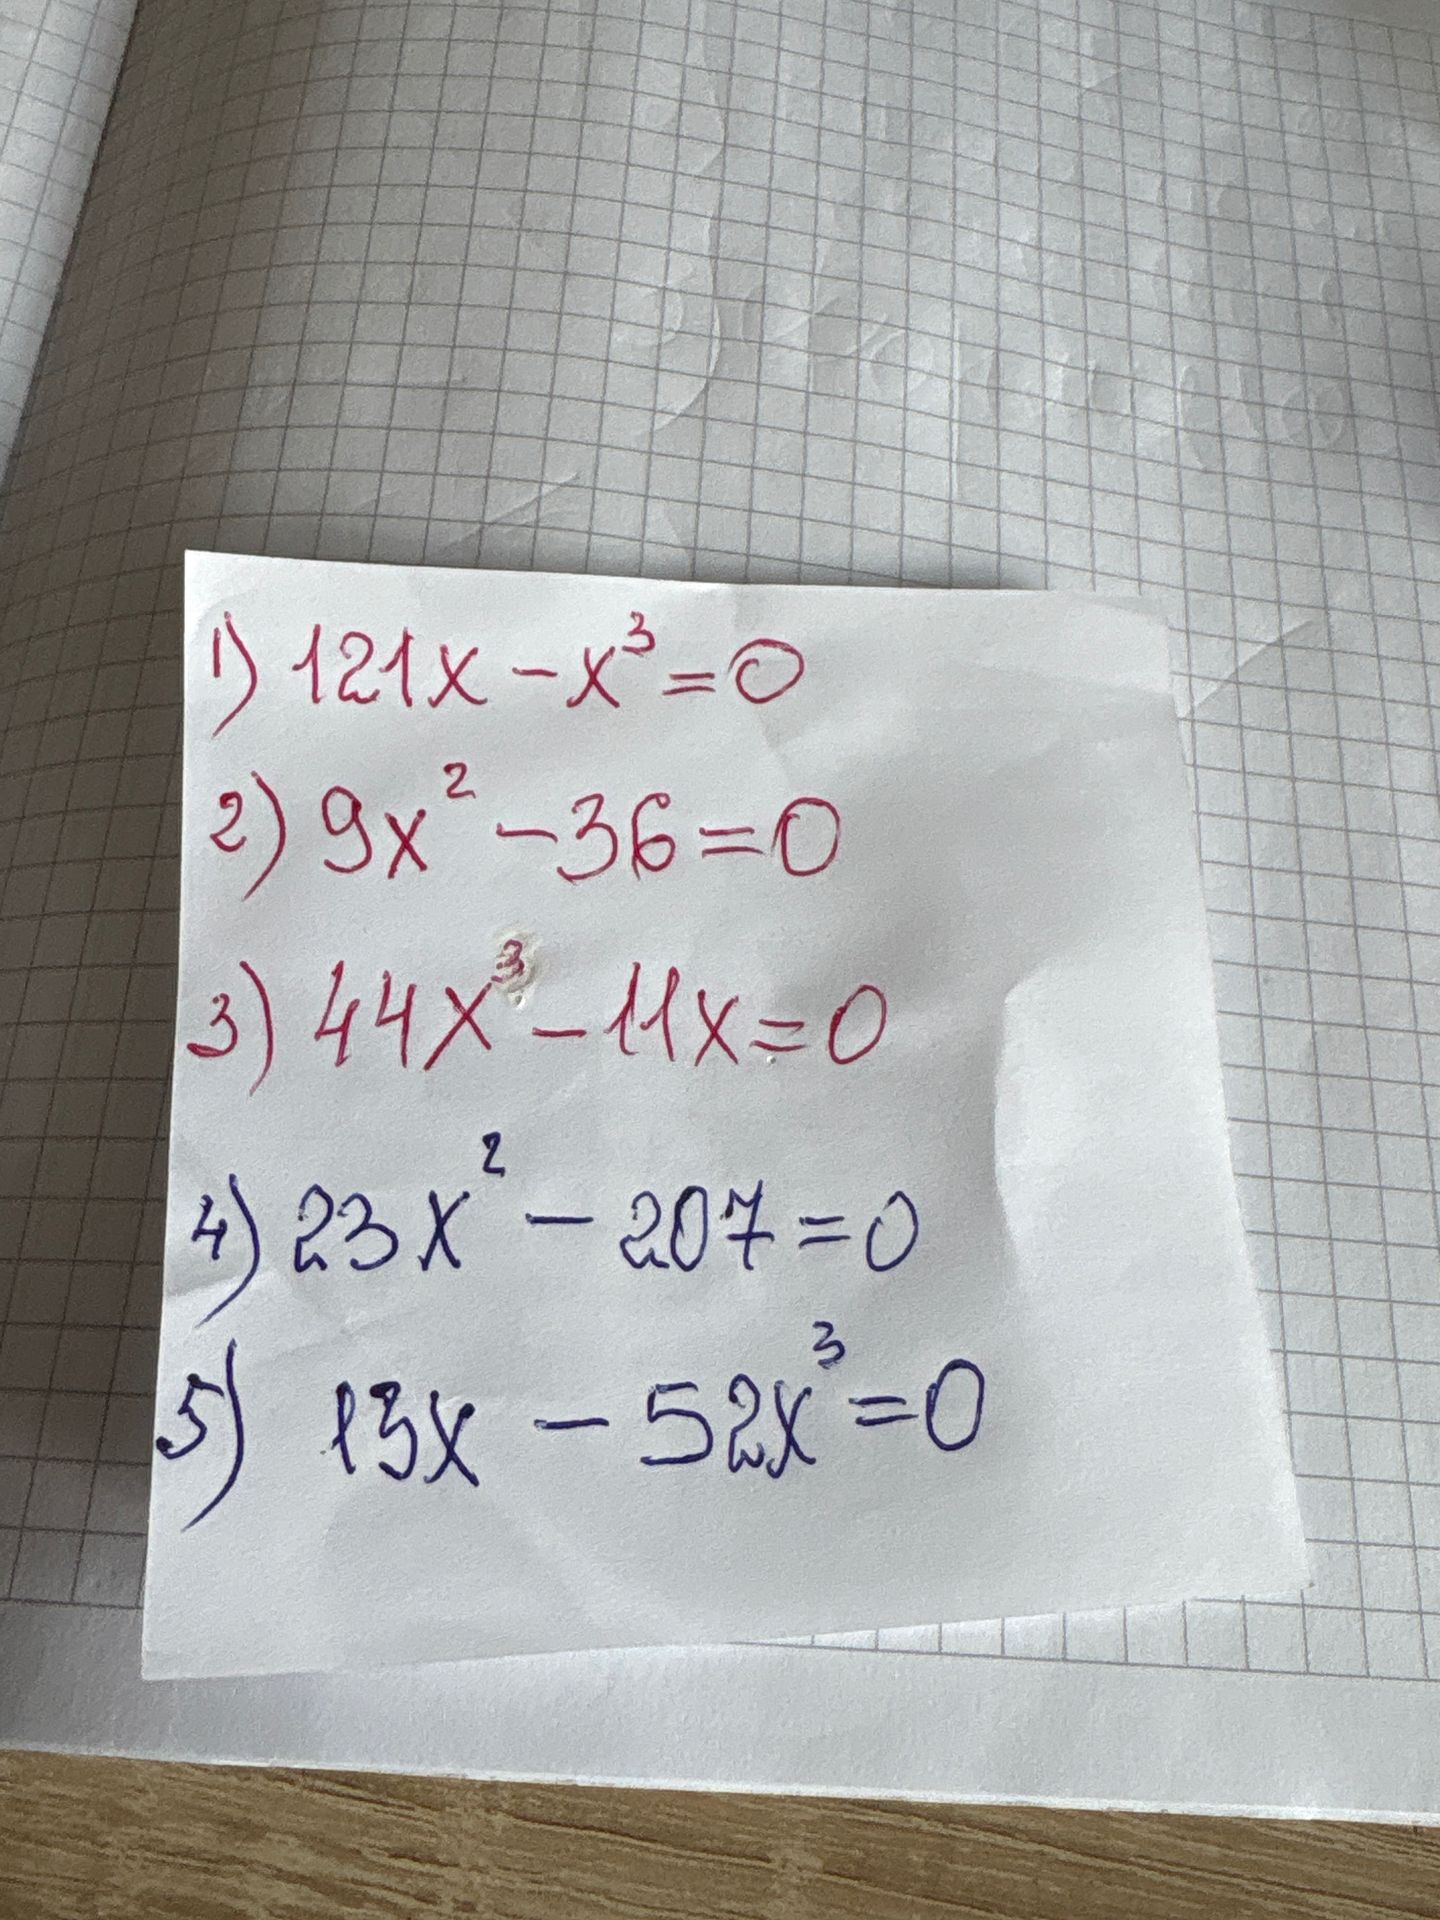 1) 121x - x³ = 0
2) 9x² - 36 = 0
3) 44x³ - 11x = 0
4) 23x² - 207 = 0
5) 13x - 52x³ = 0